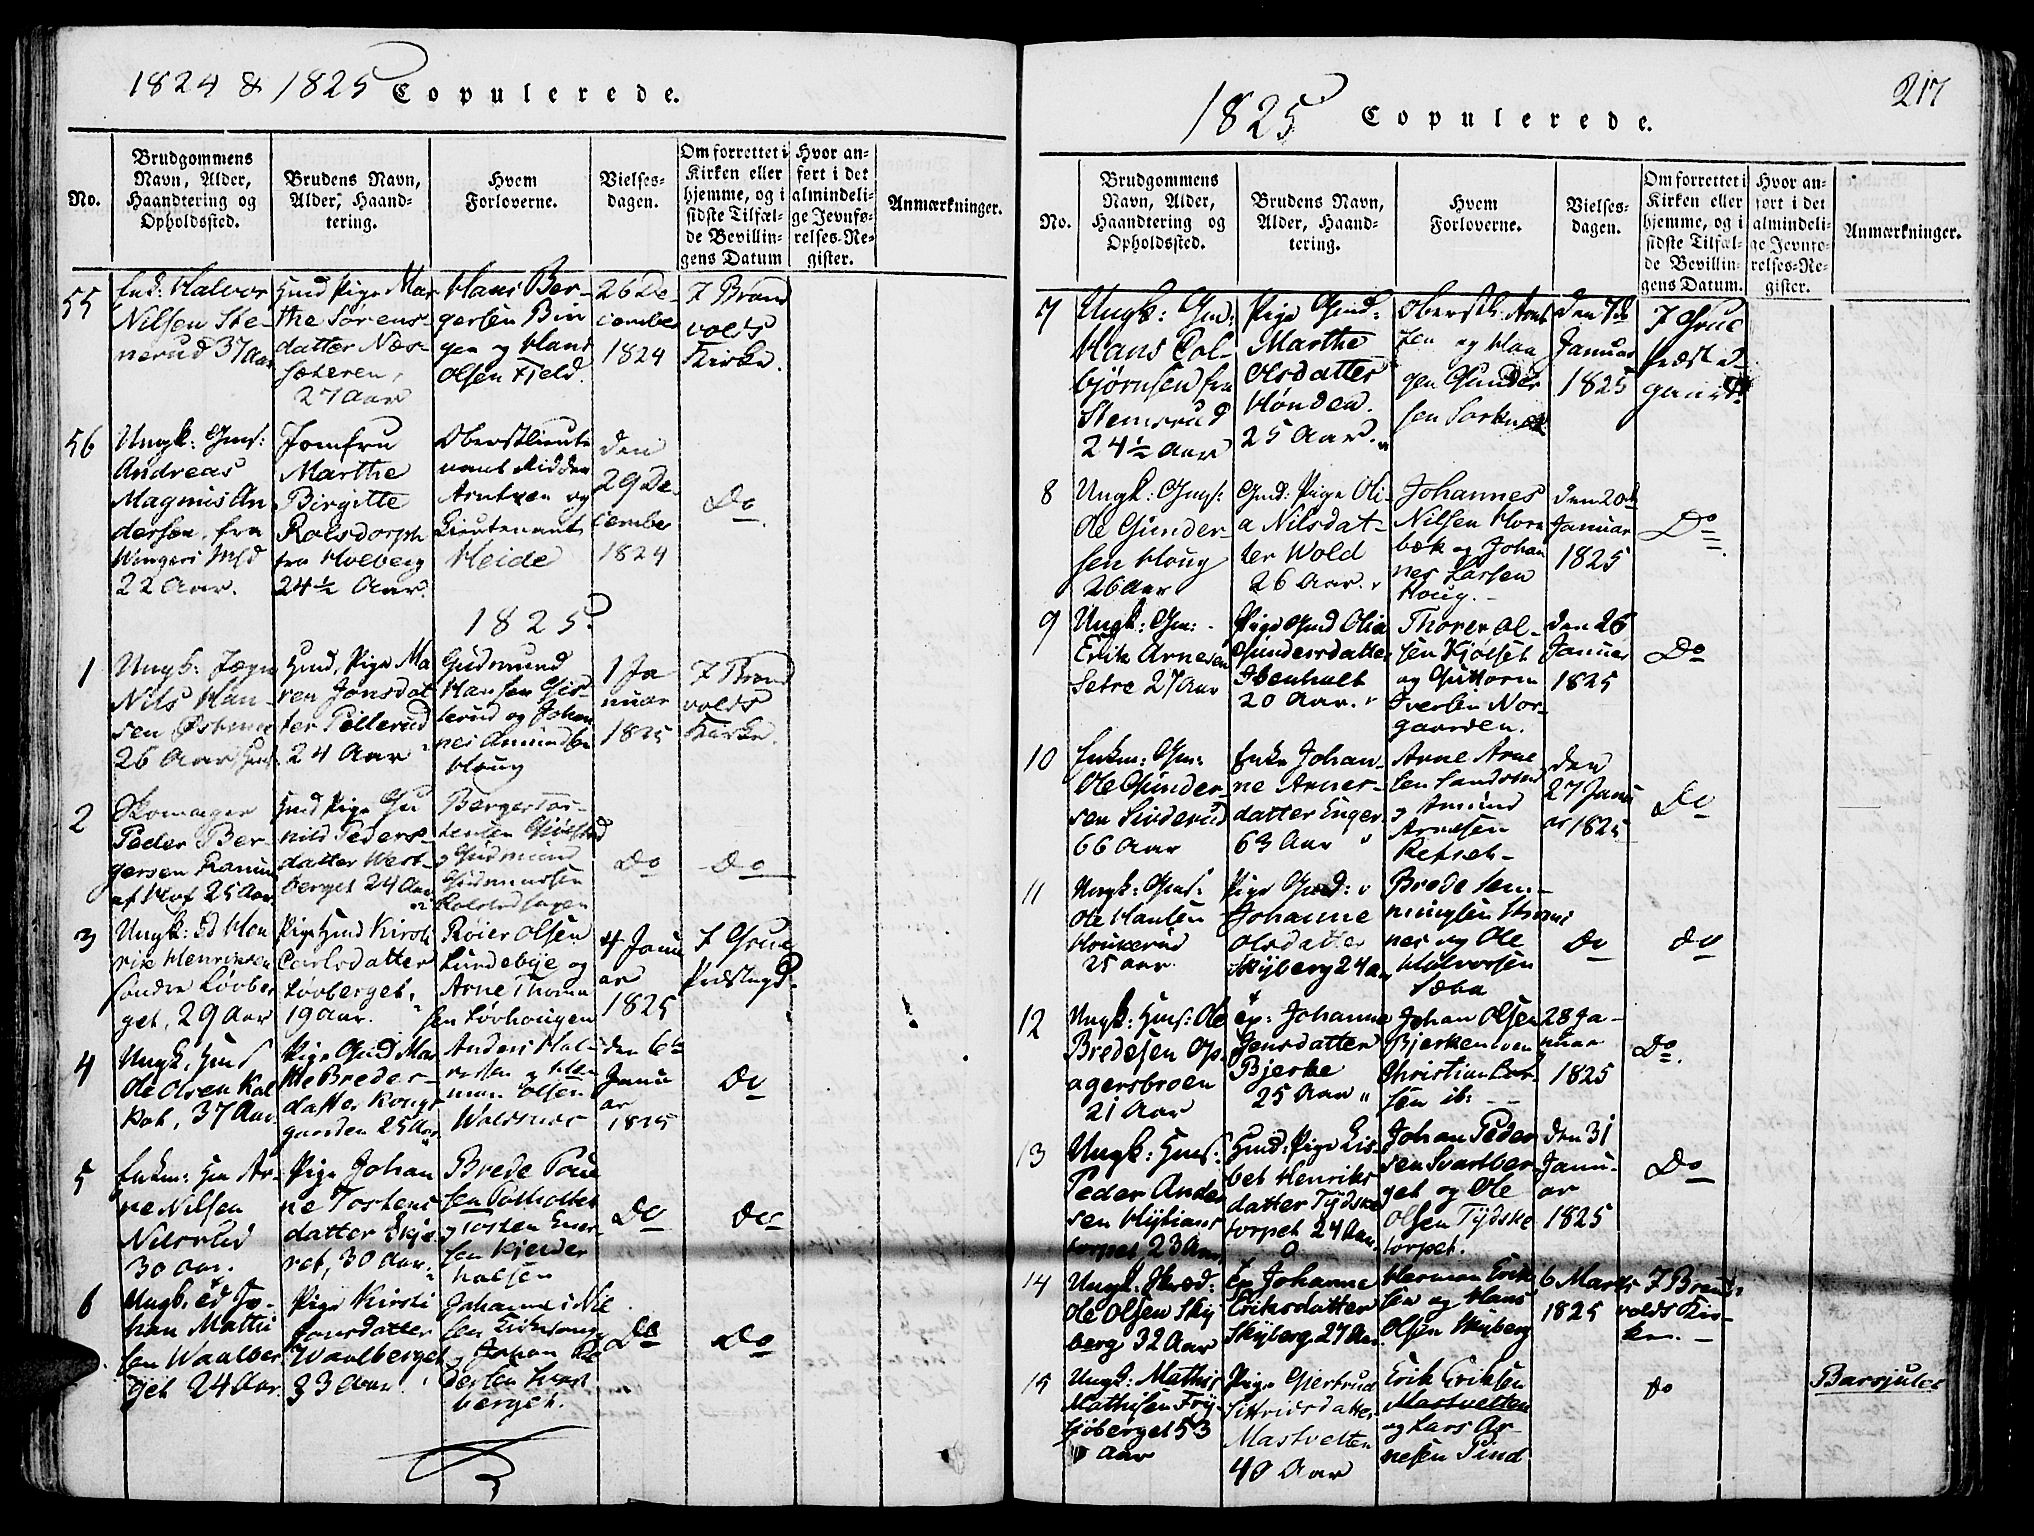 1824 & 1825 Copulerede.
No.
Brudgommens
Navn, Alder,
Haandtering og
Opholdssted.
Brudens Navn,
Alder, Haand-
tering.
Hvem
Forloverne.
Vielses-
dagen.
Om forrettet i
Kirken eller
hjemme, og i
sidste Tilfæl-
de Bevillin-
gens Datum
Hvor an-
ført i det
almindeli-
ge Jevnfø-
relses-Re-
gister.
Anmærkninger.
55
Halvor
Nilsen Ste-
nerud 37 Aar
Pige Mar
the Sørens-
datter Næs-
sæteren,
27 Aar
Hans Ber-
gersen Bin
gen og Hans
Olsen Fjeld.
26 De-
cember
1824
I Brand
volds
Kirke.
56
Ungk: Gms:
Andreas
Magnus An
dersen fra
22 Aar.
Jomfru
Marthe
Birgitte
Rolsdorph
fra Holberg
24½ Aar.
Oberstlieute
nant Ridder
Arntzen og
Lieutenant
Heide
den
29 De-
cember
1824
Do
1825.
1
Ungk:
Nils Han-
sen
26 Aar
Pige Ma
ren Jonsdat
ter Pellerud
24 Aar
Gudmund
Hansen Gis-
lerud og Johan
nes Amundsen
Houg
1 Ja
nuar
1825
I Brand
volds
Kirke.
2
Skomager
Peder Ber-
gersen
af Hof 25 Aar
Pige Gu
nild Peders-
datter West-
berget 24 Aar
Berger Tor-
stensen
og Gudmund
Gudmunsen
Do
Do
3
Ungk:
Henriksen
søndre Løvber
get, 29 Aar
Pige Kirsti
Carlsdatter
Løvberget,
19 Aar.
Røier Olsen
Lundebye og
Arne Thoma
sen Løvhougen
4 Janu
ar
1825
I Grue
Præstegd.
4
Ungk.
Ole Olsen Kal
37 Aar
Pige Ma
the Breder-
datter Kongs
gaarden 25 Aar
Anders Hal-
Olsen
Woldsnes
den 6te
Janu
ar
1825
Do
5
Enkm: Ar-
ne Nilsen
Nilsrud
30 Aar.
Pige Johan
ne Tostens
datter
30 Aar
Brede Poul
sen
og Tosten
sen
Do
Do
6
Ungk. Jo-
han Mathi
sen Waalber
get 24 Aar.
Pige Kirsti
Jonsdatter
Waalberget
33 Aar.
Johannes Nil
sen
og Johan Pe
dersen
berget.
Do
Do
1825 Copulerede.
217
No.
Brudgommens
Navn, Alder,
Haandtering og
Opholdssted.
Brudens Navn,
Alder, Haand-
tering.
Hvem
Forloverne.
Vielses-
dagen.
Om forrettet i
Kirken eller
hjemme, og i
sidste Tilfæl-
de Bevillin-
gens Datum.
Hvor an-
ført i det
almindeli-
ge Jevnfø-
relses-Re-
gister.
Anmærkninger.
7
Ungk: Gm:
Hans Col-
bjørnsen fra
Stemsrud
24½ Aar
Pige Gmd:
Marthe
Olsdatter
Hønden.
25 Aar.
Oberstl: Arnt
zen og Haa
gen Gunder
sen Sorknes
den 7de
Januar
1825
I Grue
Præste
gaard.
8
Ungk: Gms:
Ole Gunder-
sen Houg
26 Aar
Gmd: Pige Oli-
a Nilsdat-
ter Wold
26 Aar.
Johannes
Nilsen Horn
bæk og Johan
nes Larsen
Houg.
den 20de
Januar
1825
Do
9
Ungk: Gm:
Erik Arnesen
Setre 27 Aar
Pige Gmd Olia
Gundersdatter
Ibenholt
20 Aar.
Thorer Ol-
sen Kjølset
og Guttorm
Iversen Nor-
gaarden.
den 26
Januar
1825
Do
10
Enkm: Gm:
Ole Gunder-
sen Sinderud
66 Aar
Enke Johan-
ne Arnes-
datter Enger
63 Aar
Arne Arne
sen Sandstad
og Amund
Arnesen
den
27 Janu
ar 1825
Do
11
Ungk: Gms:
Ole Hansen
Houkerud
25 aar.
Pige Gmd:
Johanne
Olsdatter
Skyberg 24 a
Brede Hen-
ningsen
og Ole
Halvorsen
Sæta
Do
Do
12
Ungk: Hms: Ole
Bredesen Op-
agersbroen
21 Aar
Ep: Johanne
Jensdatter
Bjerke
25 Aar
Johan Olsen
Bjerken
Christian Lar-
sen ib:
28 Ja-
nuar
1825
Do.
13
Ungk: Hms:
Peder Ander
sen
torpet 23 Aar
Hmd: Pige Lis-
bet Henriks
datter Tydske
torpet 24 Aar.
Johan Peder
sen Svartber
get og Ole
Olsen Tydske
torpet.
den 31
Janu-
ar
1825
Do
14
Ungk.
Ole Olsen Sky
berg 32 Aar
Ep Johanne
Eriksdatter
Skyberg 27 Aar.
Herman Erik
sen og Hans
Olsen Skyberg
6 Marts
1825
I Brand-
volds Kir-
ken.
15
Ungk: Mathis
Mathisen Fry-
sjøberget 53
Aar
Pige Gjertrud
Sitvridsdatter
Mastvetten
40 Aar
Erik Eriksen
Mastvetten
og Lars Ar-
nesen Tind
Do
Barsjulet